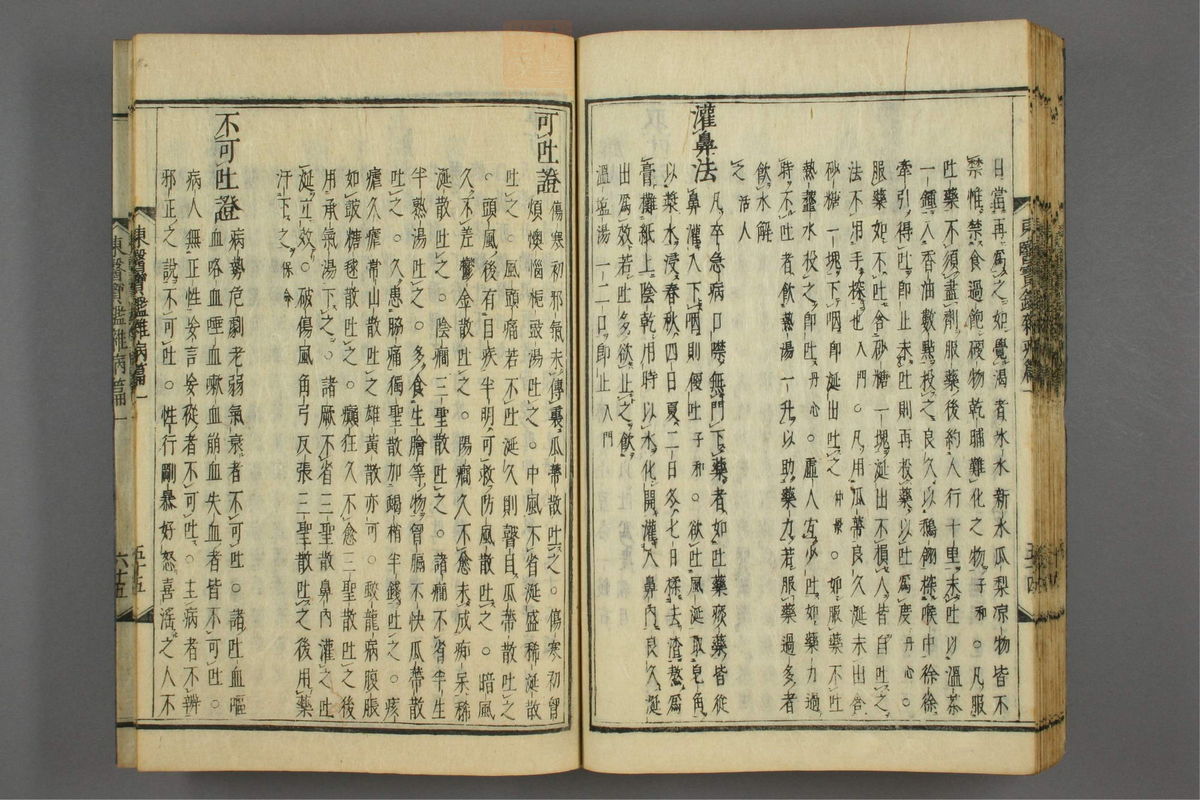 日當再爲之如覺渴者氷水新水瓜梨凉物皆不
禁惟禁食過飽硬物乾脯難化之物子和○凡服
吐藥不須盡劑服藥後約人行十里未吐以溫茶
一鍾入香油數點投之良久以鵝翎探喉中徐徐
牽引得吐卽止未吐則再投藥以吐爲度丹心○
服藥如不吐含砂糖一塊涎出不損人皆自吐之
法不用手探也入門○凡用瓜蔕良久涎未出含
砂糖一塊下咽卽涎出吐之仲景○如服藥不吐
熱虀水投之卽吐丹心○虛人宜少吐如藥力過
時不吐者飮熱湯一升以助藥力若服藥過多者
飮水解
之活人
灌鼻法
凡卒急病口噤無門下藥者如吐藥痰藥皆從
鼻灌入下咽則便吐子和○欲吐風涎取皂角
以漿水浸春秋四日夏二日冬七日揉去渣熬爲
膏攤紙上陰乾用時以水化開灌入鼻內良久涎
出爲效若吐多欲止之飮
溫塩湯一二口卽止入門
東醫寶鑑雜病篇一
可吐證
傷寒初邪氣未傳裏瓜蔕散吐之○傷寒初曾
吐之煩燠惱梔豉湯吐之○中風不省涎盛稀涎散
吐之○風頭痛若不吐涎久則瞽目瓜蔕散吐之
○頭風後有目疾半明可救防風散吐之○暗風
久不差鬱金散吐之○陽癎久不愈未成痴呆稀
涎散吐之○陰癎三聖散吐之○諸癎不省半生
半熟湯吐之○多食生膾等物曾膈不快瓜蔕散
吐之○久患脇痛獨聖散加蝎梢半錢吐之○痎
瘧久瘧常山散吐之雄黃散亦可○蛟龍病腹脹
如鼓糖毬散吐之○癲狂久不愈三聖散吐之後
用承氣湯下之○諸厥不省三聖散鼻內灌之吐
涎立效○破傷風角弓反張三聖散吐之後用藥
汗下之保命
不可吐證
病勢危劇老弱氣衰者不可吐○諸吐血嘔
血咯血唾血嗽血崩血失血者皆不可吐○
病人無正性妄言妄從者不可吐○主病者不辨
邪正之說不可吐○性行剛暴好怒喜淫之人不
東醫寶鑑雜病篇一
五十五
東醫寶鑑雜病篇一
六十五